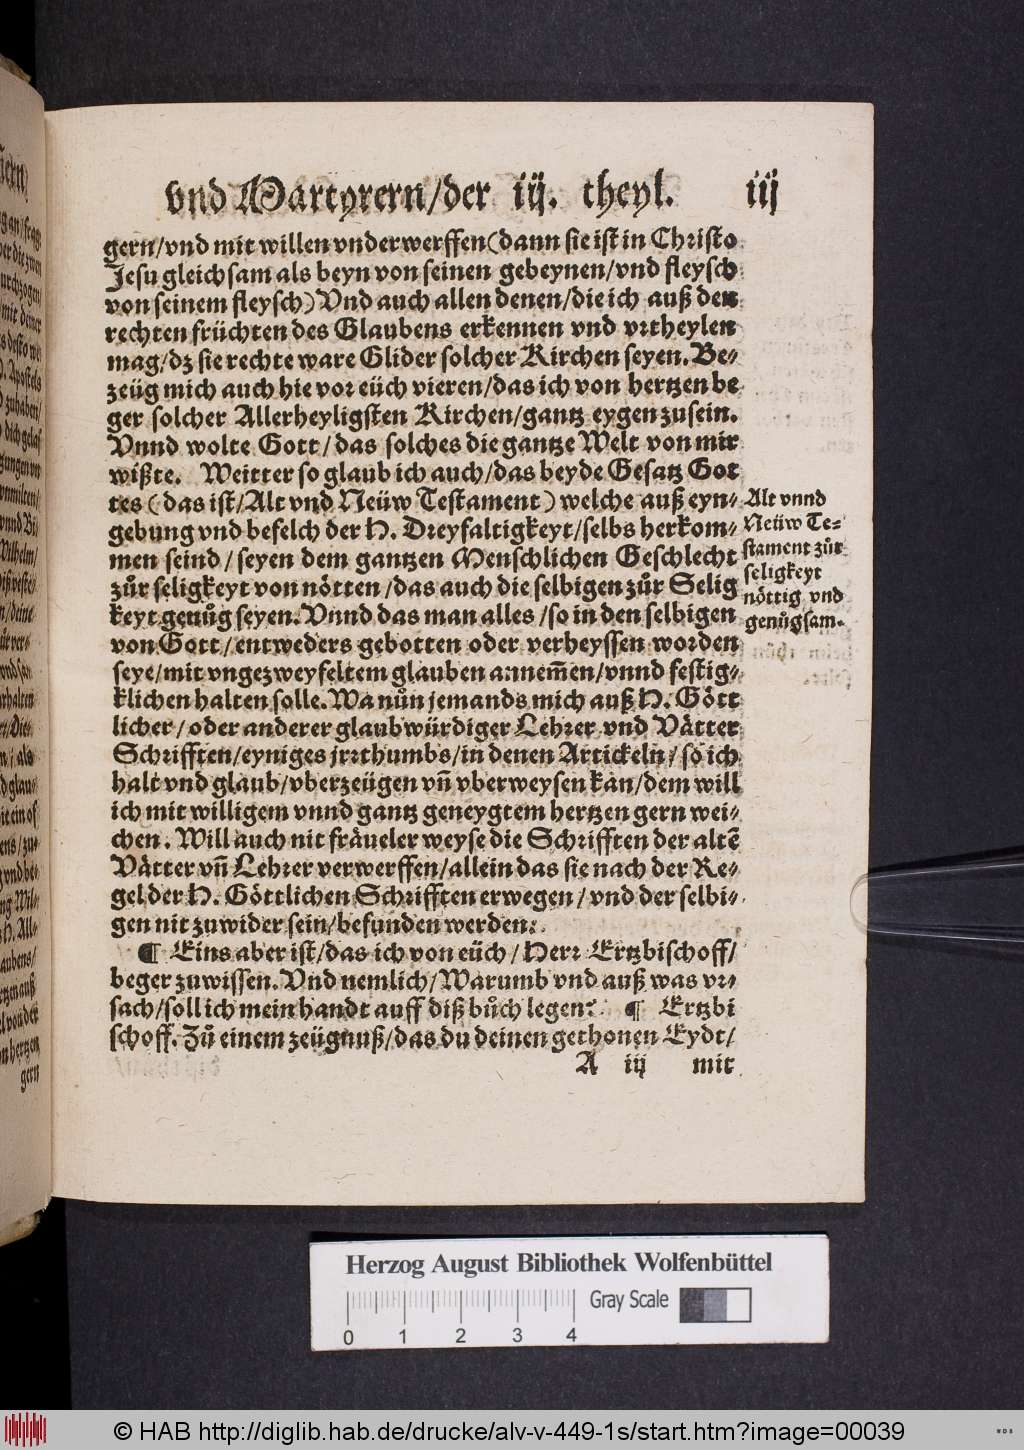 vnd Martyrern/der iij. theyl. iij
gern/vnd mit willen vnderwerffen(dann sie ist in Christo
Jesu gleichsam als beyn von seinen gebeynen/vnd fleysch
von seinem fleysch) Vnd auch allen denen/die ich auß den
rechten früchten des Glaubens erkennen vnd vrtheylen
mag/dz sie rechte ware Glider solcher Kirchen seyen. Be-
zeüg mich auch hie vor eüch vieren/das ich von hertzen be
ger solcher Allerheyligsten Kirchen/gantz eygen zusein.
Vnnd wolte Gott/das solches die gantze Welt von mir
wißte. Weitter so glaub ich auch/das beyde Gesatz Got
tes (das ist/Alt vnd Neüw Testament) welche auß eyn-
gebung vnd befelch der H. Dreyfaltigkeyt/selbs herkom-
men seind/seyen dem gantzen Menschlichen Geschlecht
zůr seligkeyt von nötten/das auch die selbigen zůr Selig
keyt genůg seyen. Vnnd das man alles/so in den selbigen
von Gott/entweders gebotten oder verheyssen worden
seye/mit vngezweyfeltem glauben annem̃en/vnnd festig-
klichen halten solle. Wa nůn jemands mich auß H. Gött
licher/oder anderer glaubwürdiger Lehrer vnd Vätter
Schrifften/eyniges jrrthumbs/in denen Artickeln/so ich
halt vnd glaub/vberzeügen vñ vberweysen kan/dem will
ich mit willigem vnnd gantz geneygtem hertzen gern wei-
chen. Will auch nit fräueler weyse die Schrifften der altẽ
Vätter vñ Lehrer verwerffen/allein das sie nach der Re-
gel der H. Göttlichen Schrifften erwegen/vnd der selbi-
gen nit zuwider sein/befunden werden.
¶ Eins aber ist/das ich von eüch/Herr Ertzbischoff/
beger zuwissen. Vnd nemlich/Warumb vnd auß was vr-
sach/soll ich mein handt auff diß bůch legen? ¶ Ertzbi
schoff. Zů einem zeügnuß/das du deinen gethonen Eydt/
A iij mit
Alt vnnd
Neüw Te-
stament zůr
seligkeyt
nöttig vnd
genůgsam.
Herzog August Bibliothek Wolfenbüttel
Gray Scale
0 1 2 3 4
© HAB http://diglib.hab.de/drucke/alv-v-449-1s/start.htm?image=00039